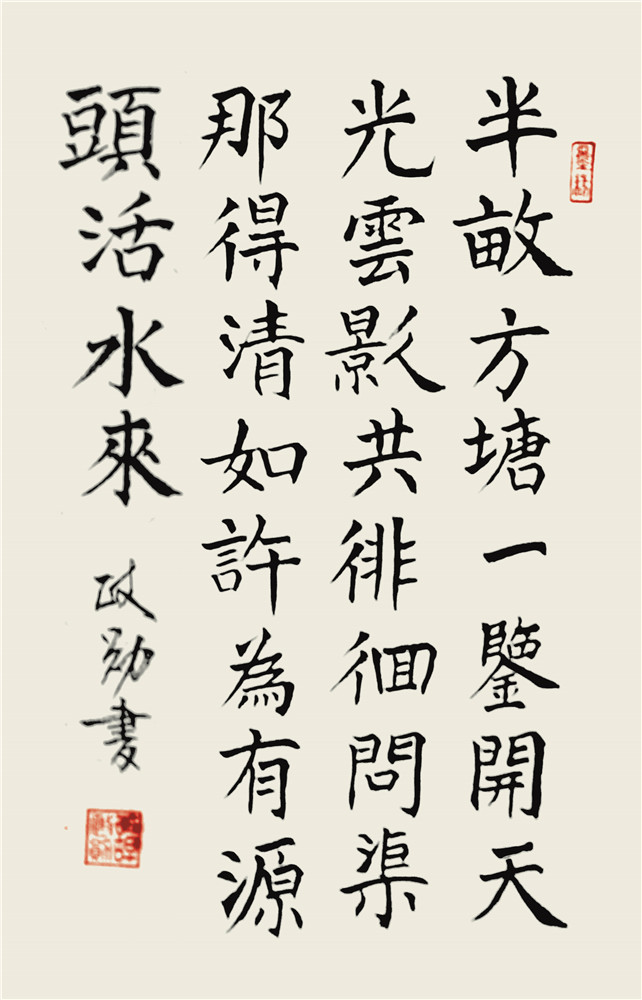 半畝方塘一鑒開天
光雲影共徘徊問渠
那得清如許為有源
頭活水來
政勛書